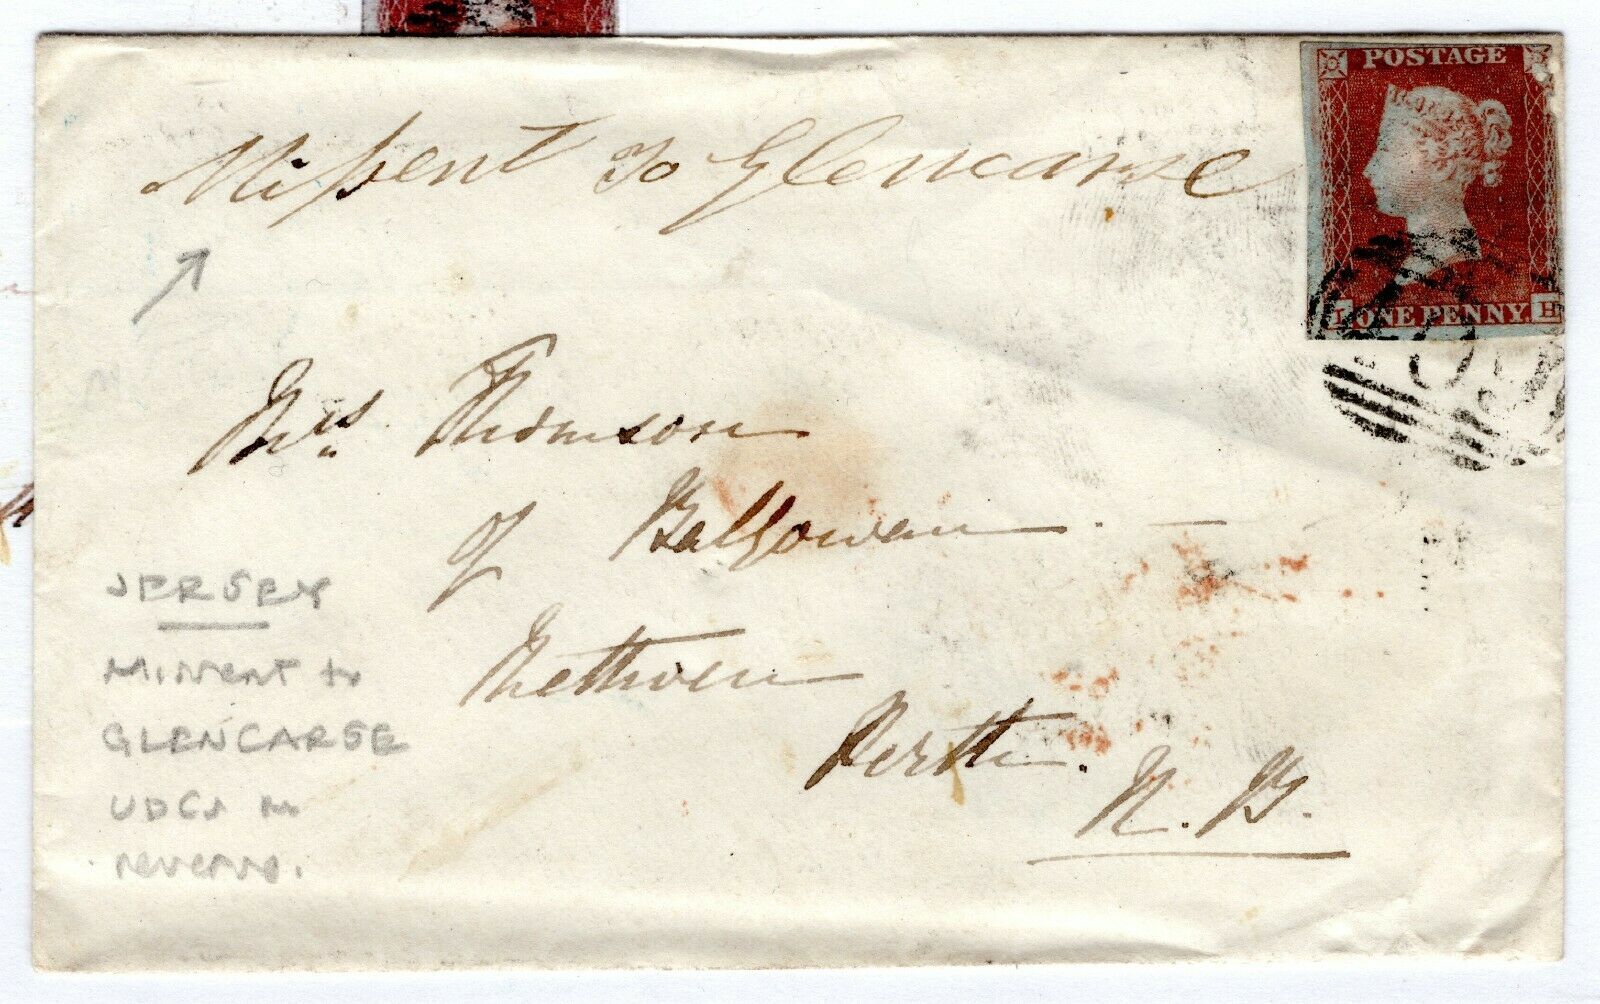 POSTAGE
Missent To Glencarse
L ONE PENNY. H
Mrs Thomson
of Balgowan
Methven
Perth.
N. B.
JERSEY
Missent to
GLENCARSE
UDCs on
reverse.